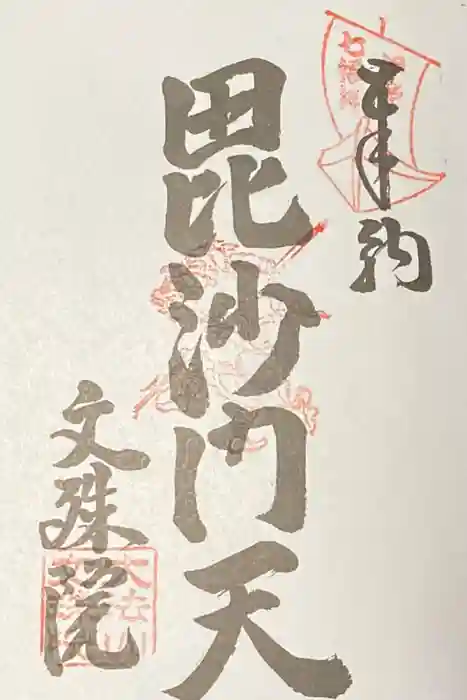 奉納
毘沙門天
文殊院